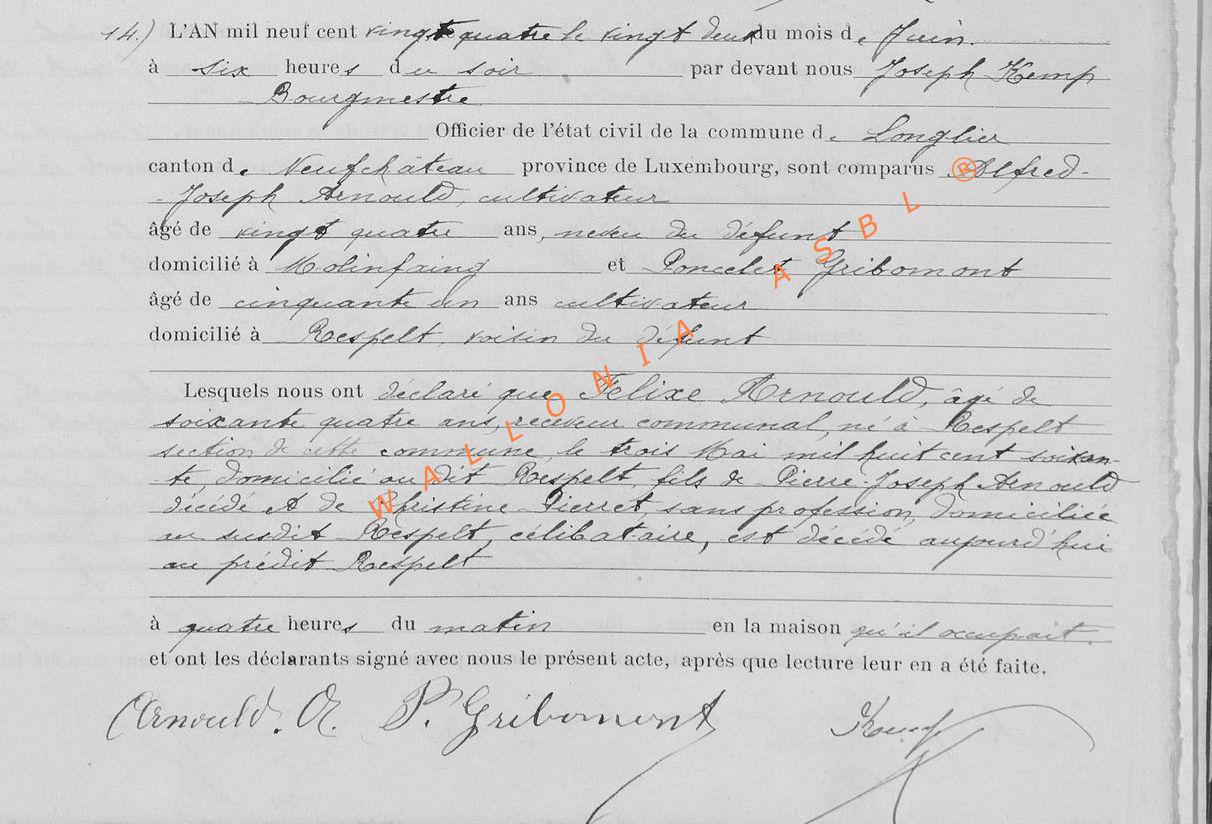 14.) L'AN mil neuf cent vingt quatre le vingt deux du mois de Juin.
à six heures du soir par devant nous Joseph Kemp
Bourgmestre
Officier de l'état civil de la commune de Longlier
canton de Neufchâteau province de Luxembourg, sont comparus Alfred-
-Joseph Arnould, cultivateur
âgé de vingt quatre ans, neveu du défunt
domicilié à Molinfaing et Poncelet Gribomont
âgé de cinquante un ans cultivateur
domicilié à Respelt, voisin du défunt
Lesquels nous ont déclaré que Felixe Arnould, âgé de
soixante quatre ans, receveur communal, né à Respelt
section de cette commune, le trois Mai mil huit cent soixan-
te, domicilié au dit Respelt, fils de Pierre-Joseph Arnould
décédé et de Christine Pierret, sans profession, domiciliée
au susdit Respelt, célibataire, est décédé aujourd'hui
au prédit Respelt
à quatre heures du matin en la maison qu'il occupait.
et ont les déclarants signé avec nous le présent acte, après que lecture leur en a été faite.
Arnould. A. P. Gribomont Kemp
WALLONIA ASBL ®